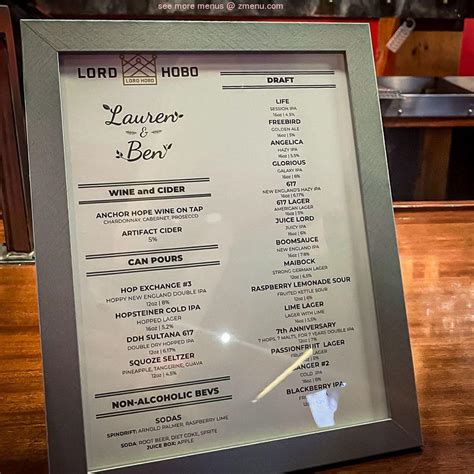 see more menus @ zmenu.com
LORD HOBO
LORD HOBO
Lauren
&
Ben
WINE and CIDER
ANCHOR HOPE WINE ON TAP
CHARDONNAY, CABERNET, PROSECCO
ARTIFACT CIDER
5%
CAN POURS
HOP EXCHANGE #3
HOPPY NEW ENGLAND DOUBLE IPA
12oz | 8%
HOPSTEINER COLD IPA
HOPPED LAGER
16oz | 5.2%
DDH SULTANA 617
DOUBLE DRY HOPPED IPA
12oz | 6.17%
SQUOZE SELTZER
PINEAPPLE, TANGERINE, GUAVA
12oz | 4.5%
NON-ALCOHOLIC BEVS
SODAS
SPINDRIFT: ARNOLD PALMER, RASPBERRY LIME
SODA: ROOT BEER, DIET COKE, SPRITE
JUICE BOX: APPLE
DRAFT
LIFE
SESSION IPA
16oz | 4.5%
FREEBIRD
GOLDEN ALE
16oz | 5%
ANGELICA
HAZY IPA
16oz | 5.5%
GLORIOUS
GALAXY IPA
16oz | 6%
617
NEW ENGLAND'S HAZY IPA
16oz | 6.17%
617 LAGER
AMERICAN LAGER
16oz | 5%
JUICE LORD
JUICY IPA
16oz | 6%
BOOMSAUCE
NEW ENGLAND IPA
12oz | 7.8%
MAIBOCK
STRONG GERMAN LAGER
RASPBERRY LEMONADE SOUR
FRUITED KETTLE SOUR
LIME LAGER
LAGER WITH LIME
7th ANNIVERSARY
7 HOPS, 7 MALTS, FOR 7 YEARS DOUBLE IPA
PASSIONFRUIT LAGER
ANGER #2
COLD IPA
BLACKBERRY IPA